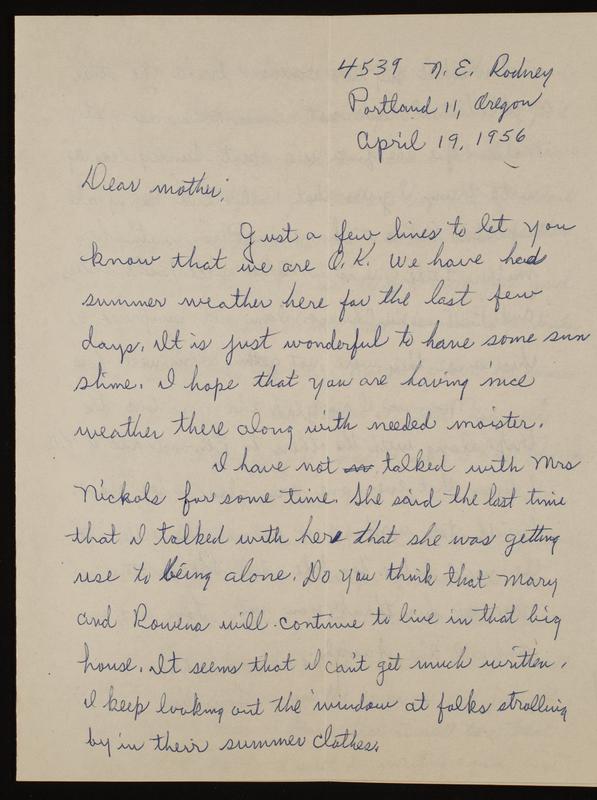 4539 N. E. Rodney
Portland 11, Oregon
April 19, 1956
Dear mother;
Just a few lines to let you
know that we are O.K. We have had
summer weather here for the last few
days. It is just wonderful to have some sun
shine. I hope that you are having nice
weather there along with needed moister.
I have not talked with Mrs
Nickols for some time. She said the last time
that I talked with here that she was getting
use to being alone. Do you think that Mary
and Rowena will continue to live in that big
house. It seems that I can't get much written.
I keep looking out the window at folks strolling
by in their summer clothes.